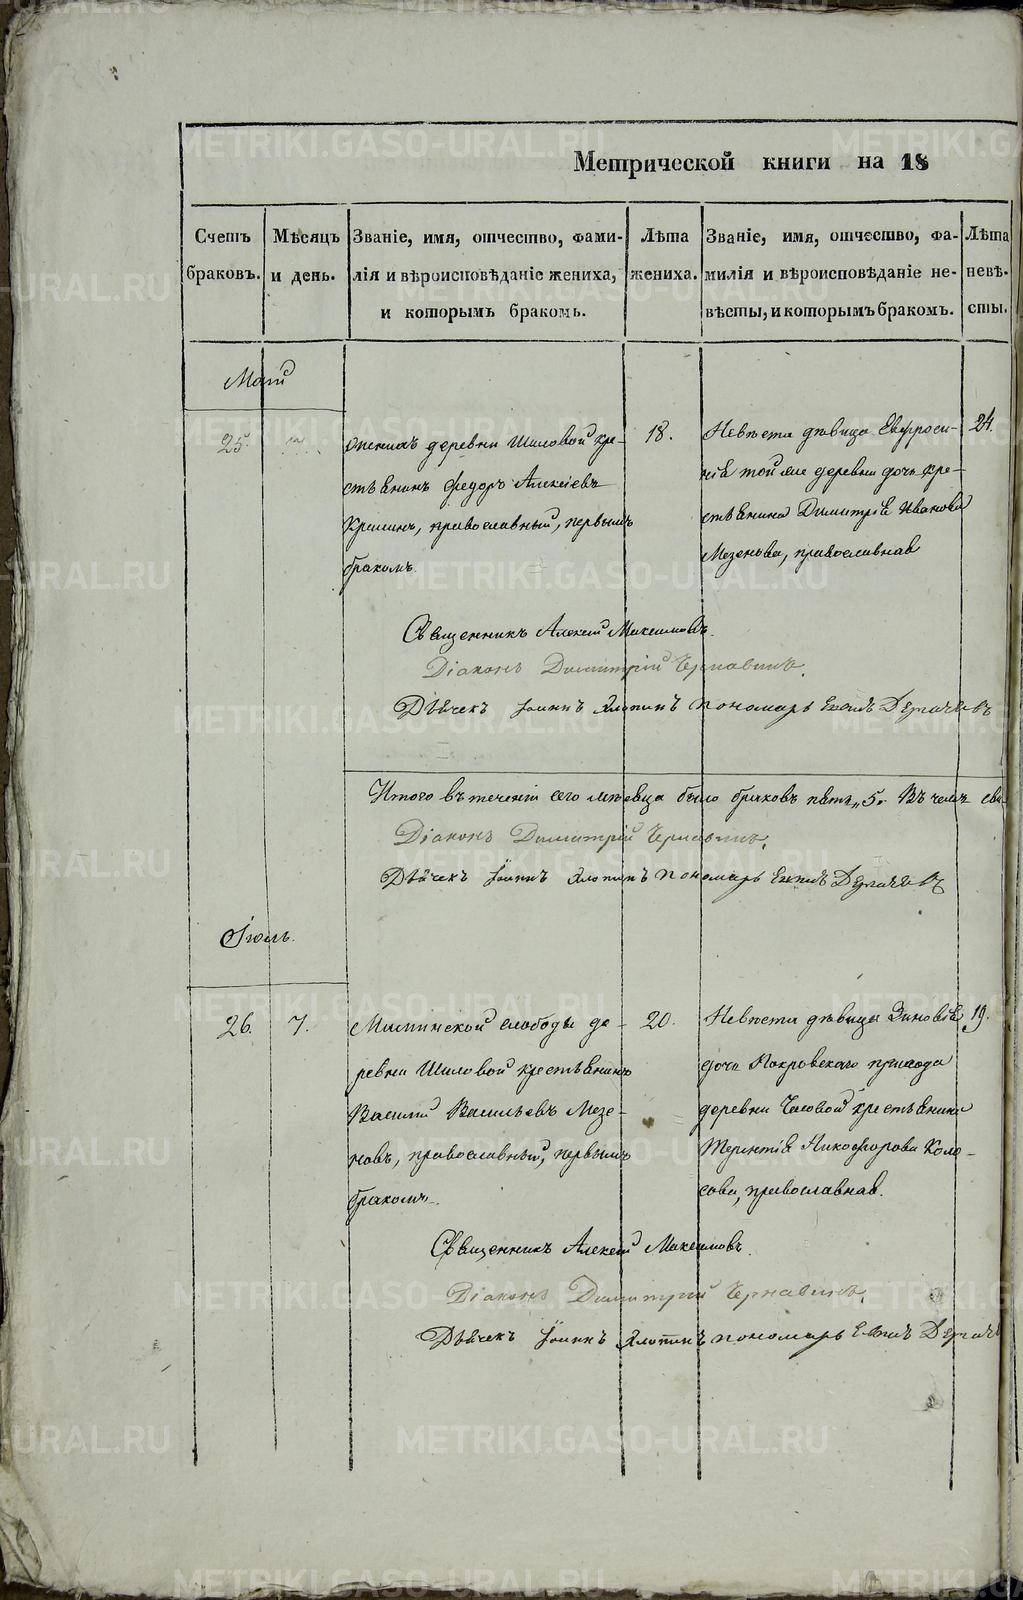 Метрической книги на 18
Счетъ браковъ.
Мѣсяцъ и день.
Званіе, имя, отчество, фами-
лія и вѣроисповѣданіе жениха,
и которымъ бракомъ.
Лѣта жениха.
Званіе, имя, отчество, фа-
милія и вѣроисповѣданіе не-
вѣсты, и которымъ бракомъ.
Лѣта невѣ-
сты.
Маій
25.
7.
Женихъ деревни Шиловой кре-
стьянинъ Федоръ Алексѣевъ
православный, первымъ
бракомъ.
18.
Невѣста дѣвица Евфроси-
нія той же деревни дочь кре-
стьянина Димитрія Иванова
Мезенова, православная
24.
Священникъ Алексій Максимовъ.
Діаконъ Димитрій Чернавинъ.
Дьячекъ Іоаннъ Хлопинъ пономарь Дерпачевъ
Итого въ теченіи сего мѣсяца было браковъ пять „5„ Въ чемъ сви-
Діаконъ Димитрій Чернавинъ.
Дьячекъ Іоаннъ Хлопинъ пономарь
Іюль.
26.
7.
слободы де-
ревни Шиловой крестьянинъ
Василій Васильевъ Мезе-
новъ, православный, первымъ
бракомъ.
20.
Невѣста дѣвица Зиновія
дочь Покровскаго прихода
деревни Часовой крестьянина
Терентія Никифорова Коло-
сова, православная.
19.
Священникъ Алексій Максимовъ.
Діаконъ Димитрій Чернавинъ.
Дьячекъ Іоаннъ Хлопинъ пономарь
METRIKI.GASO-URAL.RU